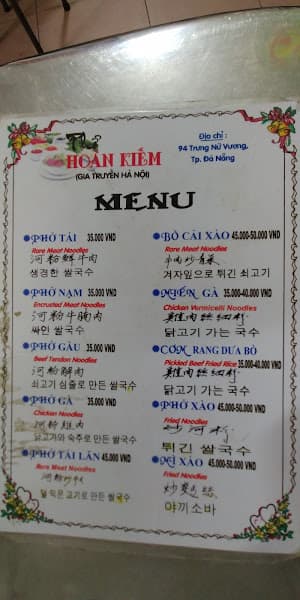 HOÀN KIẾM
(GIA TRUYỀN HÀ NỘI)
Địa chỉ :
94 Trưng Nữ Vương,
Tp. Đà Nẵng
MENU
PHỞ TÁI 35.000 VND
Rare Meat Noodles
河粉鮮牛肉
생경한 쌀국수
PHỞ NẠM 35.000 VND
Encrusted Meat Noodles
河粉牛腩肉
싸인 쌀국수
PHỞ GÂU 35.000 VND
Beef Tendon Noodles
河粉
쇠고기 심줄로 만든 쌀국수
PHỞ GÀ 35.000 VND
Chicken Noodles
河粉雞肉
닭고기와 숙주로 만든 쌀국수
PHỞ TÁI LĂN 45.000 VND
Rare Meat Noodles
河粉炒
덜 익은 고기로 만든 쌀국수
BÒ CẢI XÀO 45.000-50.000 VND
Rare Meat Noodles
牛肉炒青菜
겨자잎으로 튀긴 쇠고기
MIẾN GÀ 35.000-40.000 VND
Chicken Vermicelli Noodles
雞肉
닭고기 가는 국수
CƠM RANG DƯA BÒ
Pickled Beef Fried Rice 35.000-40.000 VND
雞肉
닭고기 가는 국수
PHỞ XÀO 45.000-50.000 VND
Fried Noodles
炒河粉
튀긴 쌀국수
MÌ XÀO 45.000-50.000 VND
Fried Noodles
炒麵
야끼소바